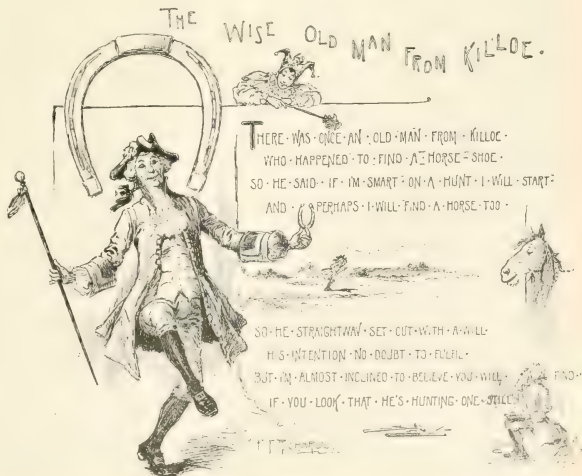 THE WISE OLD MAN FROM KILLOE.
THERE·WAS·ONCE·AN·OLD·MAN·FROM·KILLOE·
WHO·HAPPENED·TO·FIND·A·HORSE-SHOE·
SO·HE·SAID··IF·I'M·SMART·ON·A·HUNT·I·WILL·START-
AND·PERHAPS·I·WILL·FIND·A·HORSE·TOO·
SO·HE·STRAIGHTWAY·SET·OUT·WITH·A·WILL·
HIS·INTENTION·NO·DOUBT·TO·FULFIL·
BUT·I'M·ALMOST·INCLINED·TO·BELIEVE·YOU·WILL·FIND·
IF·YOU·LOOK·THAT·HE'S·HUNTING·ONE·STILL